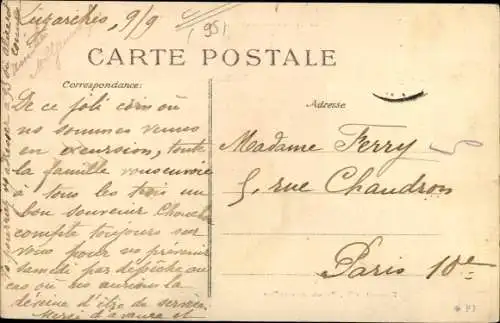 Luzarches, 9/9
(95)
CARTE POSTALE
Correspondance:
Adresse
De ce joli coin où
ns sommes venus
en excursion, toute
la famille vous envoie
à tous les trois un
bon souvenir
compte toujours sur
vous pour ns prévenir
samedi par dépêche au
cas où ns aurions la
déveine d'être de service.
Merci d'avance et
Madame Ferry
5, rue Chaudron
Paris 10e